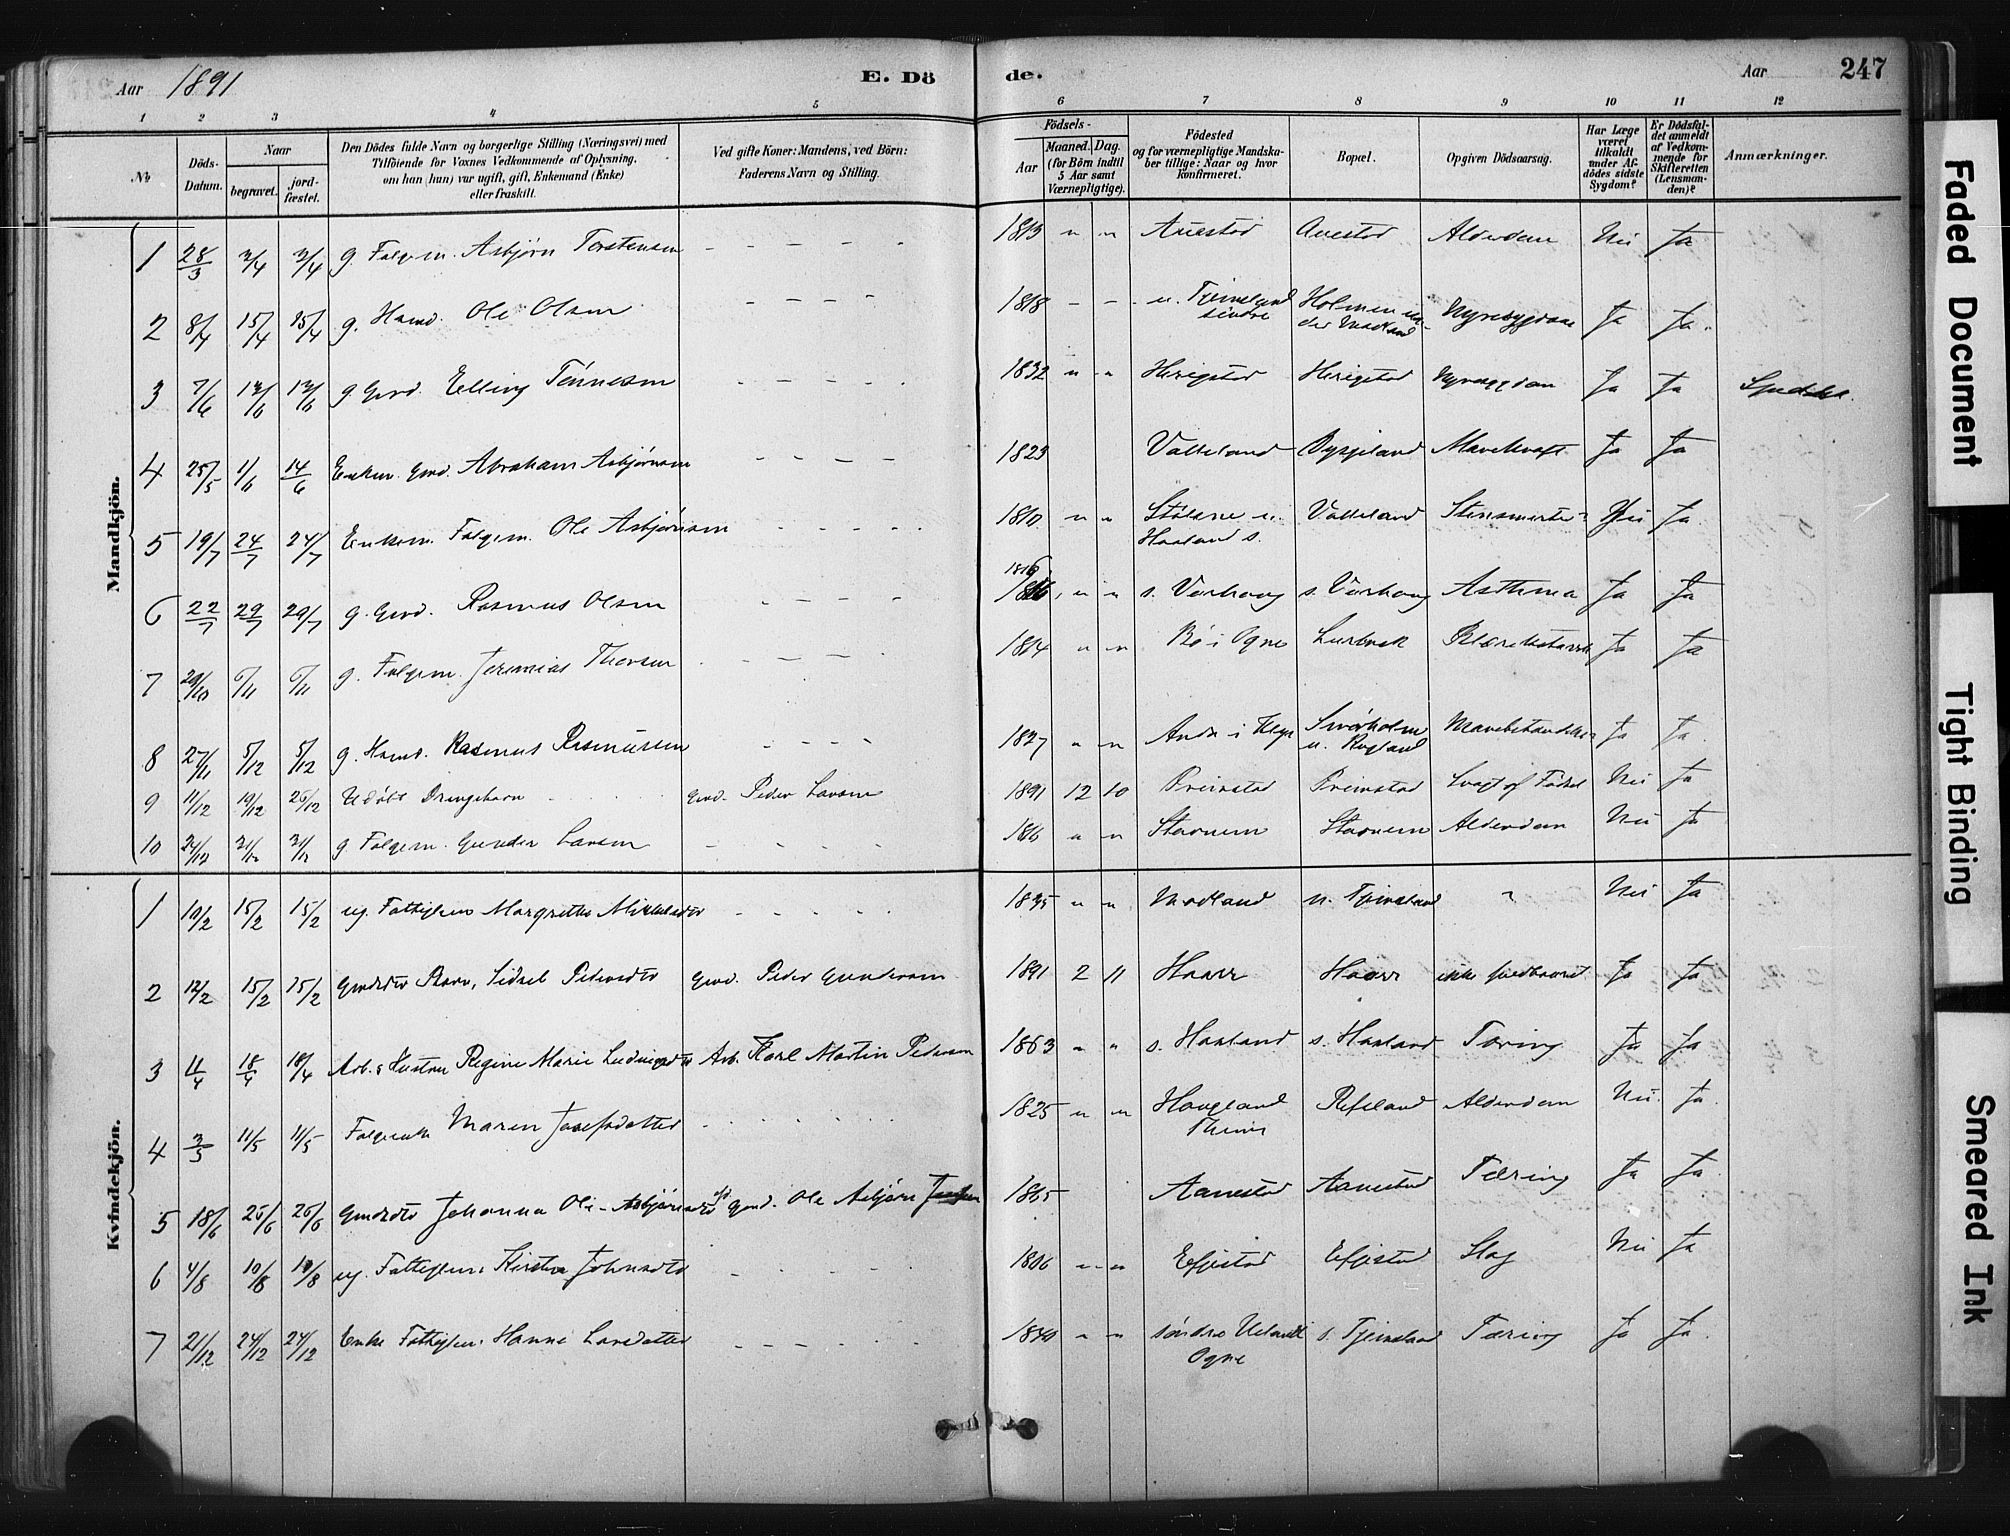 Aar 1891 E. Döde. Aar 247
1 2 3 4 5 6 7 8 9 10 11 12
No
Döds-Datum.
Naar
begravet.
jord-fæstet.
Den Dödes fulde Navn og borgerlige Stilling (Næringsvei) med
Tilföiende for Voxnes Vedkommende af Oplysning,
om han (hun) var ugift, gift, Enkemand (Enke)
eller fraskilt.
Ved gifte Koner: Mandens, ved Börn:
Faderens Navn og Stilling.
Födsels-
Aar
Maaned. Dag.
(for Börn indtil
5 Aar samt
Værnepligtige).
Födested
og for værnepligtige Mandska-
ber tillige: Naar og hvor
konfirmeret.
Bopæl.
Opgiven Dödsaarsag.
Har Læge
været
tilkaldt
under Af-
dödes sidste
Sygdom?
Er Dödsfal-
det anmeldt
af Vedkom-
mende for
Skifteretten
(Lensman-
den)?
Anmærkninger.
Mandkjön.
1 28/3 3/4 3/4 g. Folgem. Asbjørn Torstensen - - - - - 1813 " " Auestad Auestad Alderdom Nei Ja
2 8/4 15/4 15/4 g. Ole Olsen - - - - 1818 - - n. Tjemsland Holmen un-
søndre der Madland Nyresygdom Ja Ja
3 7/6 13/6 13/6 g. Gmd. Elling Tønnesen - - - - - 1832 " " Herigstad Herigstad Nyresygdom Ja Ja
4 25/5 1/6 14/6 Enkem. Gmd. Abraham Asbjørnsen - - - - 1823 Valleland Mavekræft Ja Ja
5 19/7 24/7 24/7 Enkem. Folgem. Ole Asbjørnsen - - - - 1810 " " Stølene u.
Haaland s. Valleland Nei Ja
6 22/7 29/7 29/7 g. Gmd. Rasmus Olsen - - - - 1816 " " s. Varhaug s. Varhaug Asthma Ja Ja
7 29/10 6/11 6/11 g. Folgem. Jeremias Thorsen - - - - 1814 " " Bø i Ogne Ja Ja
8 27/11 5/12 5/12 g. Rasmus Rasmussen - - - - 1827 " " Ja Ja
9 11/12 19/12 26/12 Udøbt Drengebarn Gmd. Peder Larsen 1891 12 10 Preimstad Preimstad Svagt af Fødsel Nei Ja
10 24/12 31/12 31/12 g. Folgem. Gunder Larsen - - - - - 1816 " " Stavnem Stavnem Alderdom Nei Ja
Kvindekjön.
1 10/2 15/2 15/2 ug. Fattiglem Margrethe - - - - - 1835 " " Madland n. Tjemsland " Nei Ja
2 12/2 15/2 15/2 Barn, Sidsel Pedersdtr Gmd. Peder Gundersen 1891 2 11 Haarr Haarr ikke fuldbaaret Ja Ja
3 11/4 18/4 18/4 Arb.s Hustru Regine Marie Arb. Karl Martin Pedersen 1863 " " s. Haaland s. Haaland Tæring Ja Ja
4 3/5 11/5 11/5 Folgeenke Maren Josefsdatter - - - - - - 1825 " " Haugland
Refsland Alderdom Nei Ja
5 18/6 26/6 26/6 Johanna Ole-Asbjørnsdtr Gmd. Ole Asbjørn 1865 Aanestad Aanestad Tæring Ja Ja
6 4/8 10/8 10/8 ug. Fattiglem Kirstine Johnsdtr - - - - - 1806 " " Slag Nei Ja
7 21/12 24/12 24/12 Enke Fattiglem Hanne Larsdatter - - - - - 1840 " " søndre
Ogne s. Tjemsland Tæring Ja Ja
Faded Document
Tight Binding
Smeared Ink